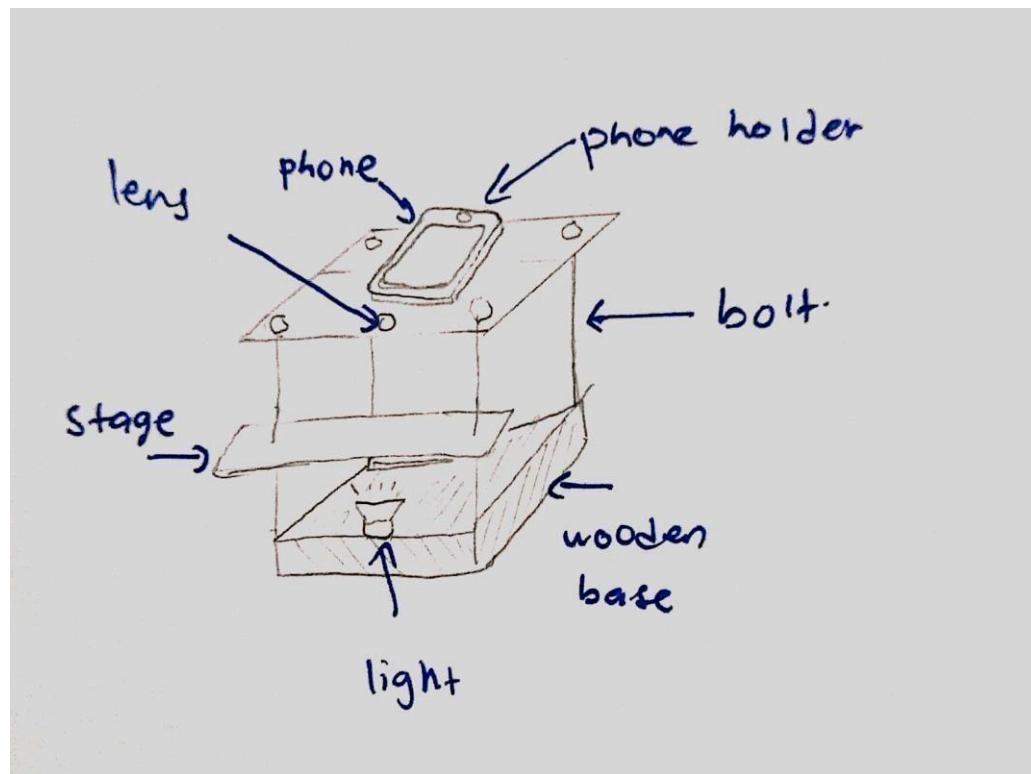 phone holder
phone
lens
bolt.
stage
wooden
base
light